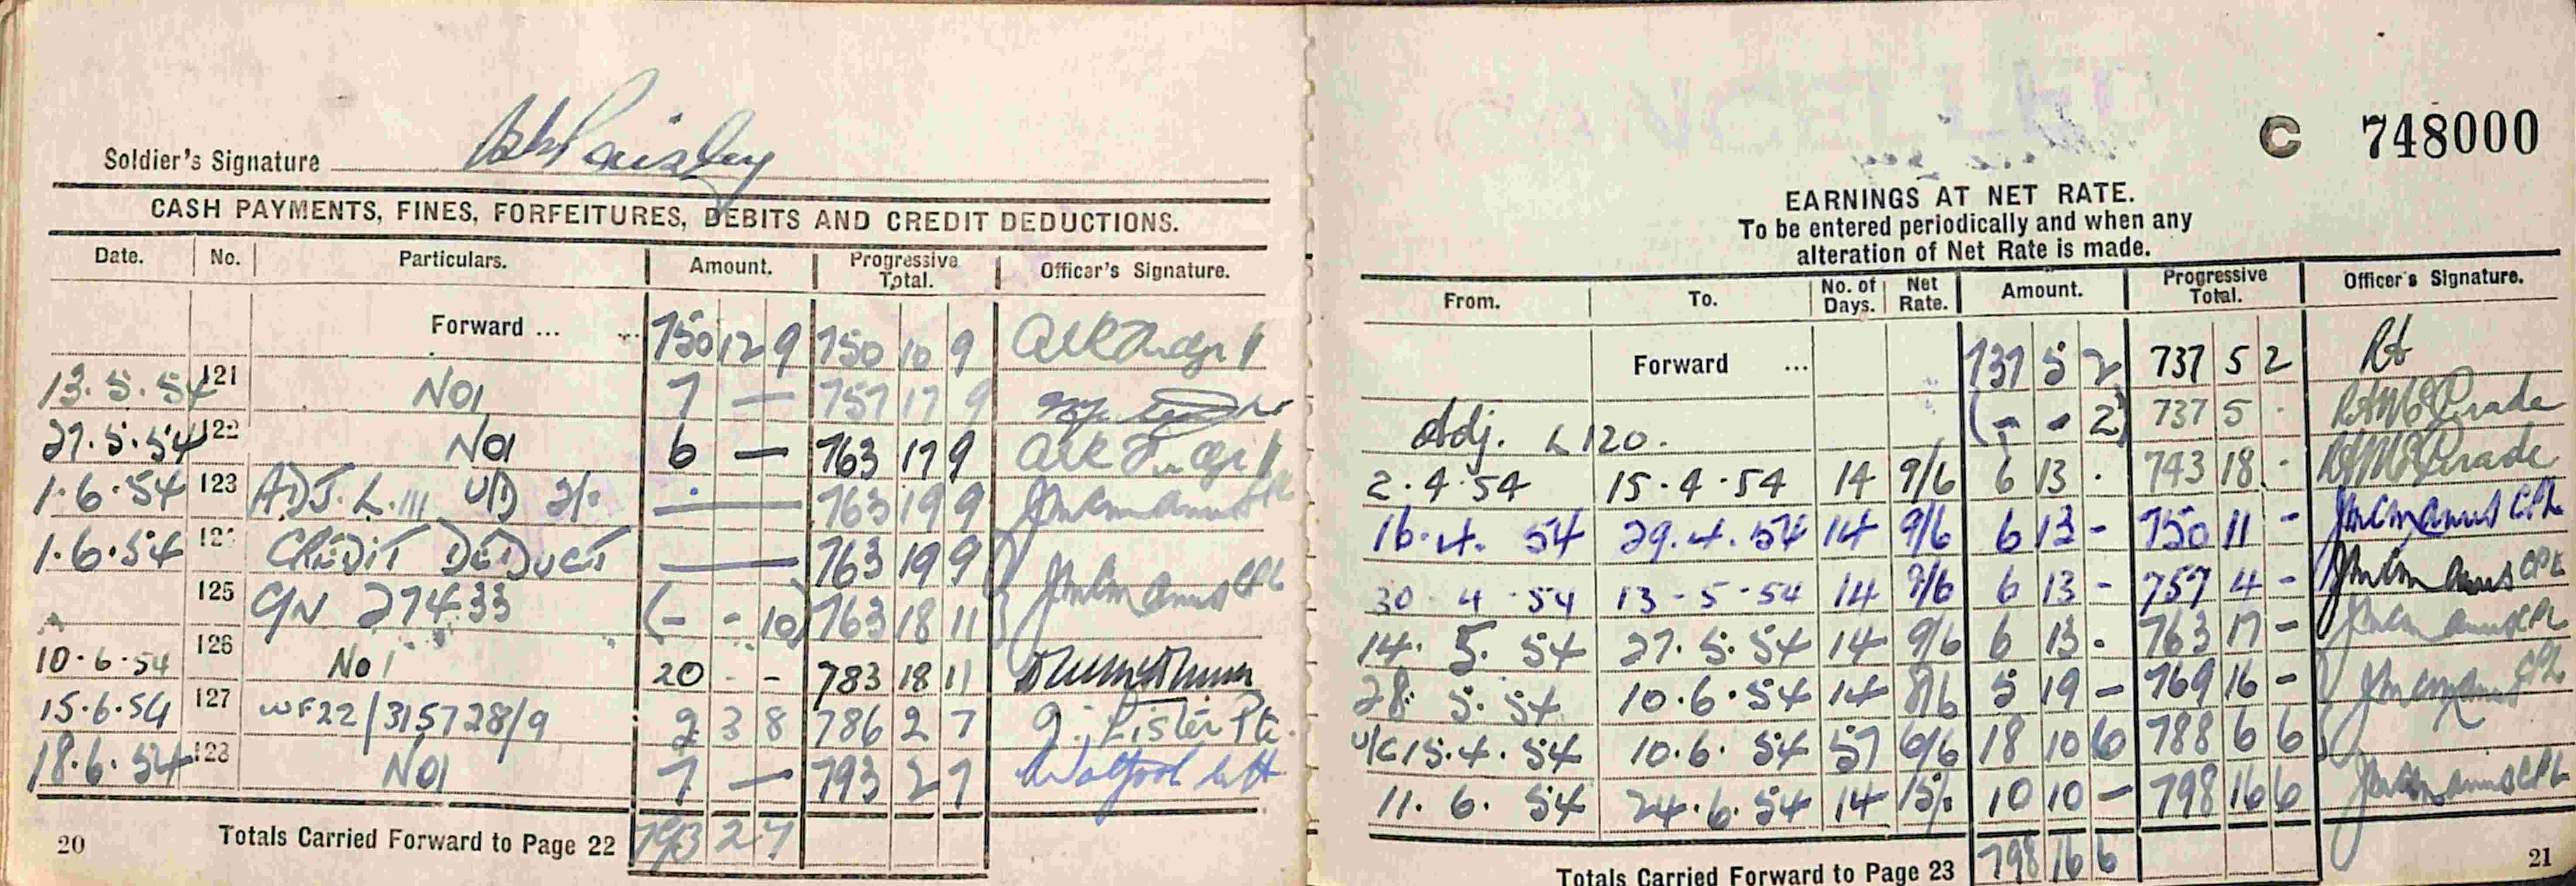 Soldier's Signature Paisley
CASH PAYMENTS, FINES, FORFEITURES, DEBITS AND CREDIT DEDUCTIONS.
Date. No. Particulars. Amount. Progressive Total. Officer's Signature.
Forward ... ... 750 12 9 750 10 9
13.5.54 121 NO1 7 — 757 17 9
27.5.54 122 NO1 6 — 763 17 9
1.6.54 123 ADJ. L.111 U/D 2/- — 763 19 9
1.6.54 CREDIT DEDUCT — 763 19 9
125 CN 27433 (- - 10) 763 18 11
10.6.54 126 No 1 20 - - 783 18 11
15.6.54 127 WF22/315728/9 2 3 8 786 2 7 Lister Pte.
18.6.54 128 NO1 7 — 793 2 7
Totals Carried Forward to Page 22 793 2 7
20
CANCELLED
C 748000
EARNINGS AT NET RATE.
To be entered periodically and when any
alteration of Net Rate is made.
From. To. No. of Days. Net Rate. Amount. Progressive Total. Officer's Signature.
Forward ... 737 5 2 737 5 2
Adj. L120. (- - 2) 737 5 -
2.4.54 15.4.54 14 9/6 6 13 . 743 18 -
16.4.54 29.4.54 14 9/6 6 13 - 750 11 - CPL
30-4-54 13-5-54 14 9/6 6 13 - 757 4 - CPL
14.5.54 27.5.54 14 9/6 6 13 - 763 17 - CPL
28.5.54 10.6.54 14 8/6 5 19 - 769 16 - CPL
U/C 15.4.54 10.6.54 57 6/6 18 10 6 788 6 6
11.6.54 24.6.54 14 15/- 10 10 - 798 16 6 CPL
Totals Carried Forward to Page 23 798 16 6
21